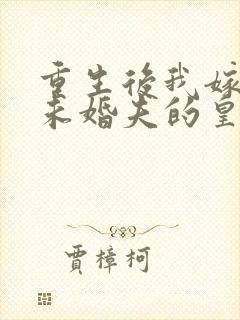 重生後我嫁
未婚夫的皇
賈樟柯